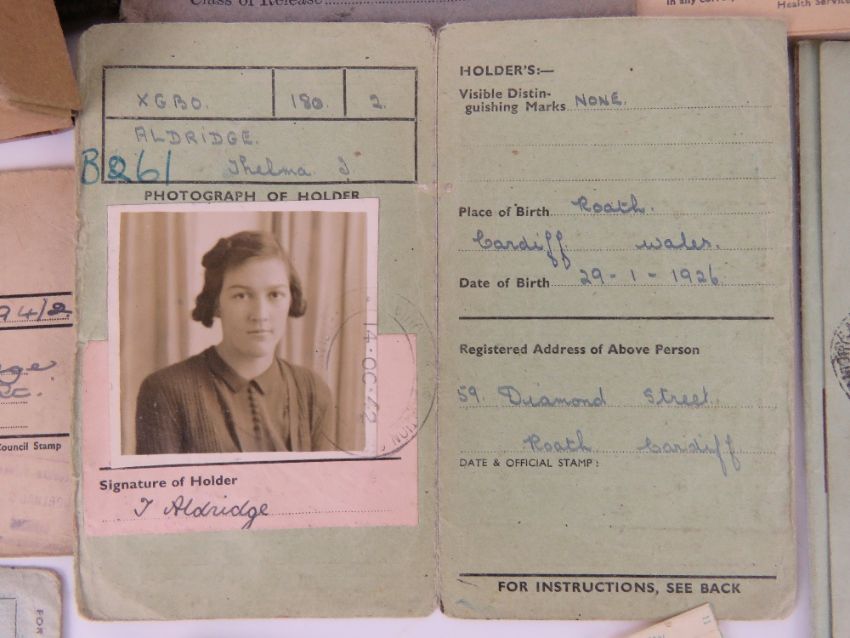 Class of Release
in any
Health Service
XGBO. 180. 2.
ALDRIDGE.
B261 Thelma J
PHOTOGRAPH OF HOLDER
14·OC·42
Signature of Holder
T Aldridge
HOLDER'S:—
Visible Distin-
guishing Marks NONE.
Place of Birth Roath.
Cardiff. Wales.
Date of Birth 29-1-1926
Registered Address of Above Person
59. Diamond Street.
Roath Cardiff
DATE & OFFICIAL STAMP:
FOR INSTRUCTIONS, SEE BACK
94/2
Council Stamp
FOR